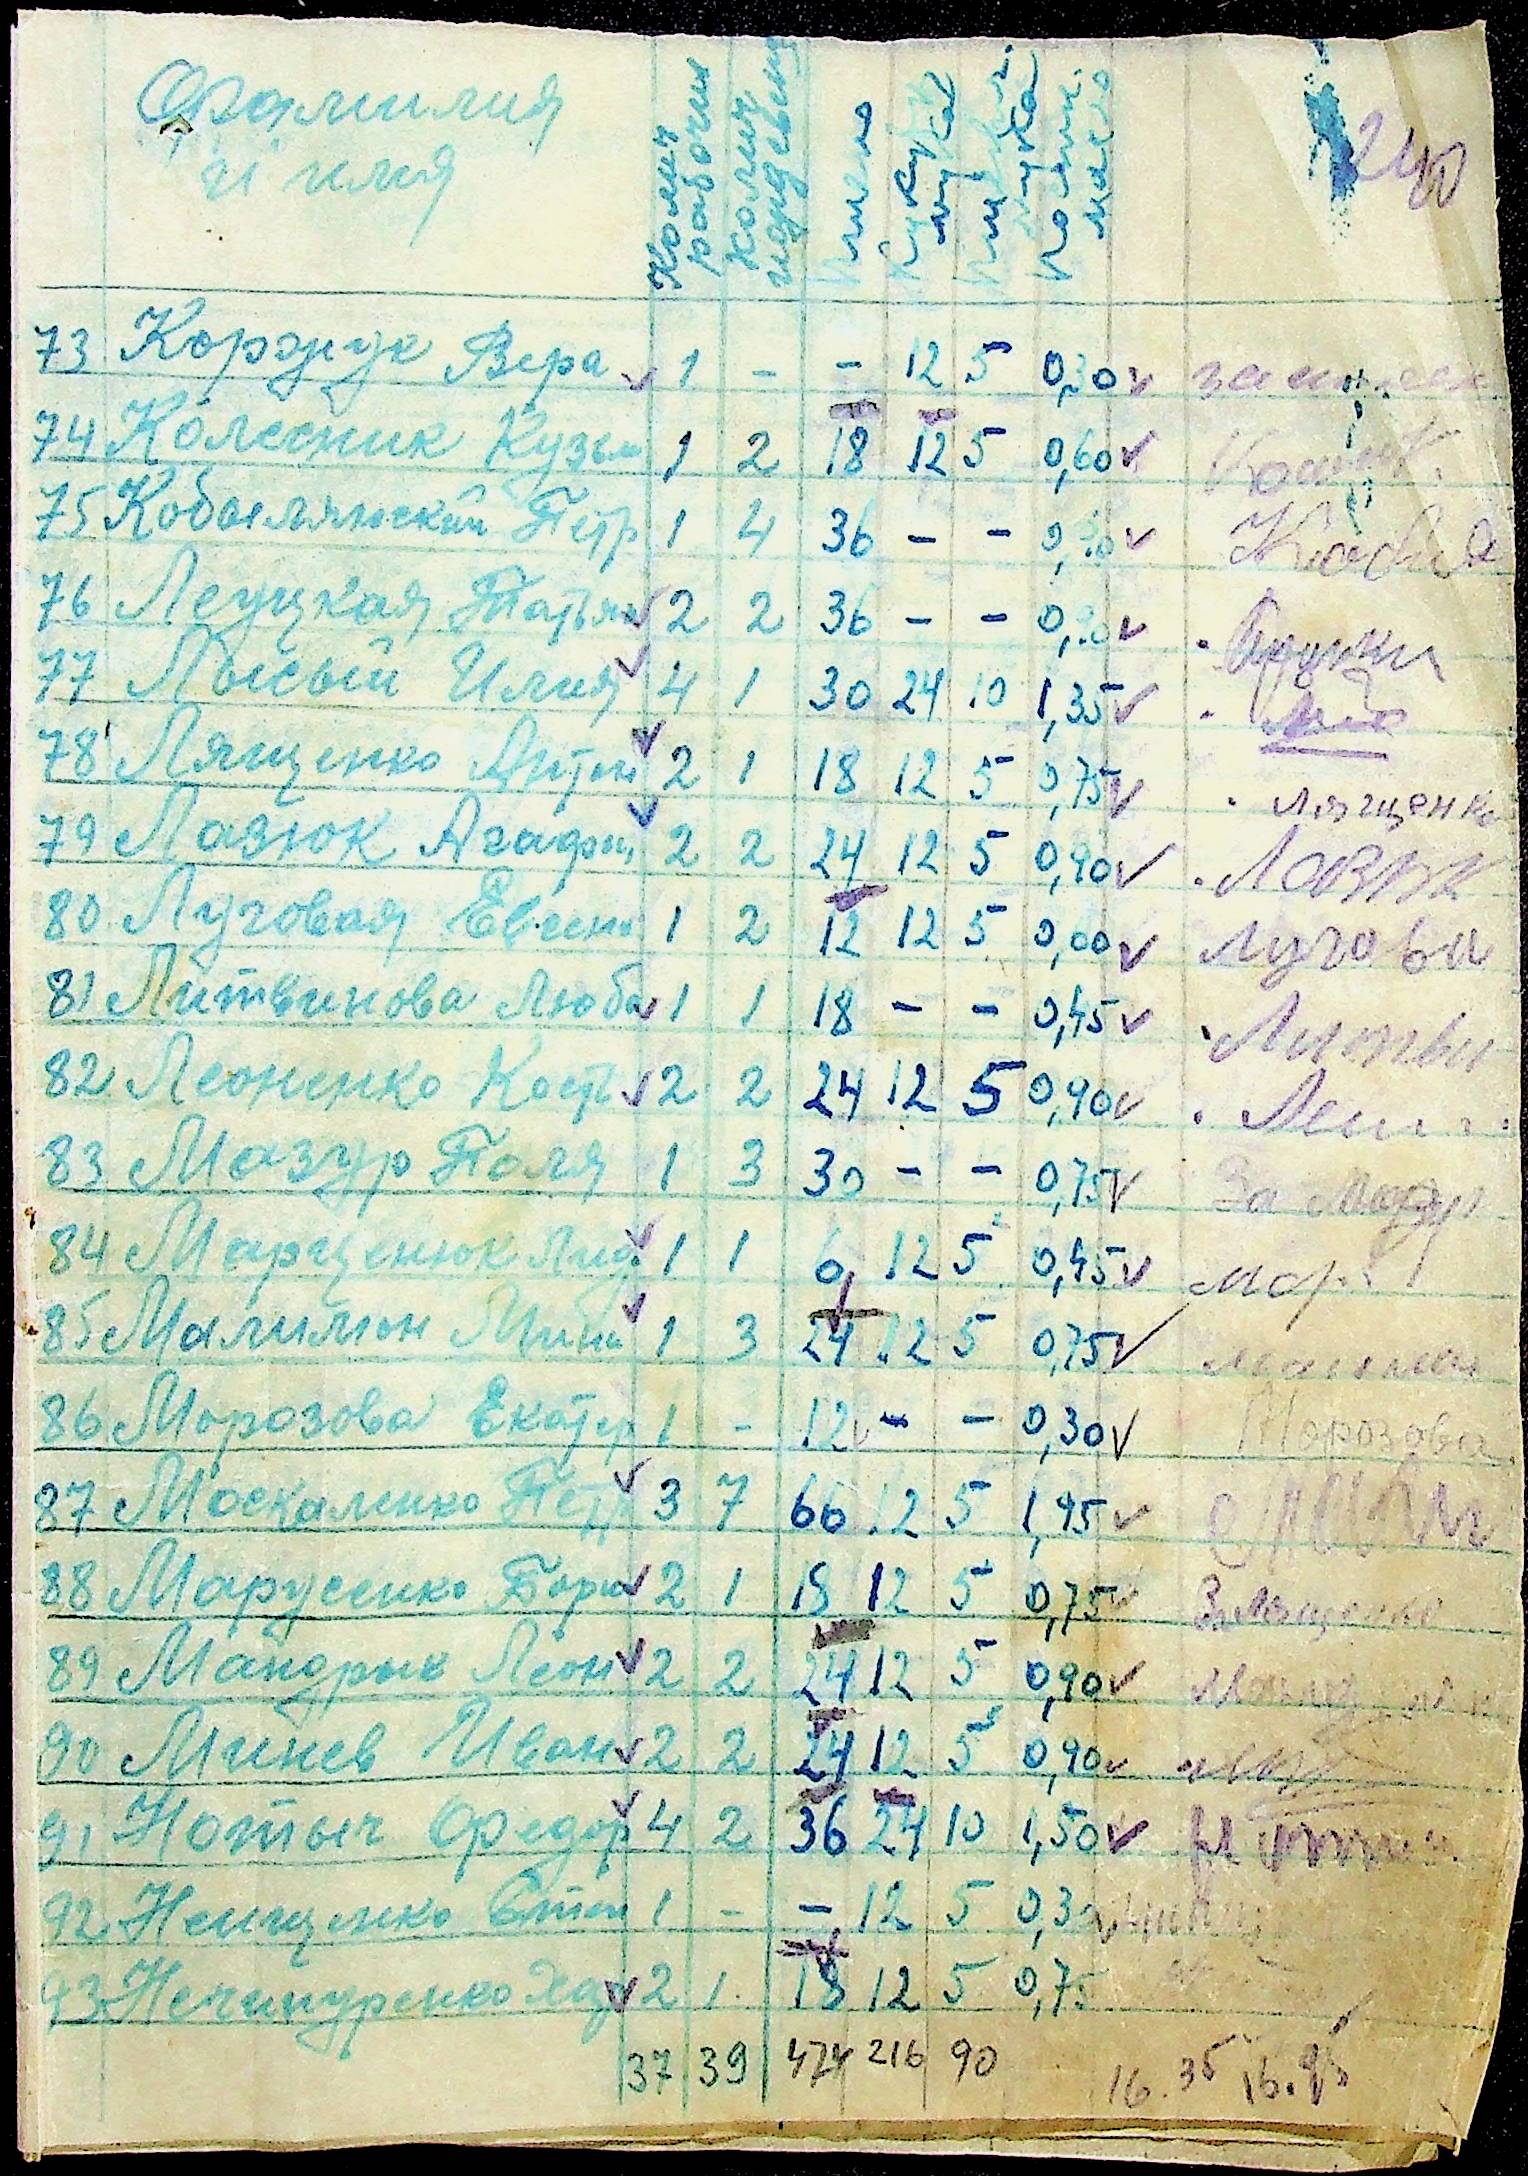 Фамилия
и имя
Колич рабочих
Колич иждевенц
Пшено
Кукур мука
мука
масло
240
73 Коржук Вера 1 - - 12 5 0,30
74 Колесник Кузьм 1 2 18 12 5 0,60
75 Кобылянский Петр 1 4 36 - - 0,90
76 Леуцкая Татьян 2 2 36 - - 0,90
77 Лысый Илия 4 1 30 24 10 1,35
78 Лященко Антон 2 1 18 12 5 0,75 Лященко
79 Лазюк Агафи 2 2 24 12 5 0,90 Лазюк
80 Луговая Евгени 1 2 12 12 5 0,60 Лугова
81 Литвинова Люба 1 1 18 - - 0,45 Литви
82 Леоненко Кость 2 2 24 12 5 0,90
83 Мазур Поля 1 3 30 - - 0,75 За Мазур
84 Марценюк Лид 1 1 6 12 5 0,45 Мар
85 Малимон Миха 1 3 24 12 5 0,75
86 Морозова Екатер 1 - 12 - - 0,30 Морозова
87 Москаленко Петр 3 7 66 12 5 1,95
88 Марусенко Бори 2 1 18 12 5 0,75
89 Мандрык Леон 2 2 24 12 5 0,90
90 Минев Иван 2 2 24 12 5 0,90
91 Нотыч Федор 4 2 36 24 10 1,50
92 Ненценко Степ 1 - - 12 5 0,30
93 Нечипуренко Хар 2 1 18 12 5 0,75
37 39 474 216 90 16.35 16.95